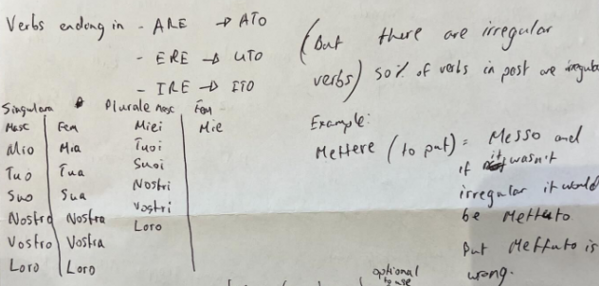 Verbs ending in - ARE → ATO
- ERE → UTO
- IRE → ITO
(But there are irregular
verbs) 50% of verbs in past are irregular
Singulare Plurale masc Fem
Masc Fem Miei Mie
Mio Mia Tuoi
Tuo Tua Suoi
Suo Sua Nostri
Nostro Nostra Vostri
Vostro Vostra Loro
Loro Loro
Example:
Mettere (to put) = Messo and
if it wasn't
irregular it would
be Mettuto
But Mettuto is
wrong.
optional
to use